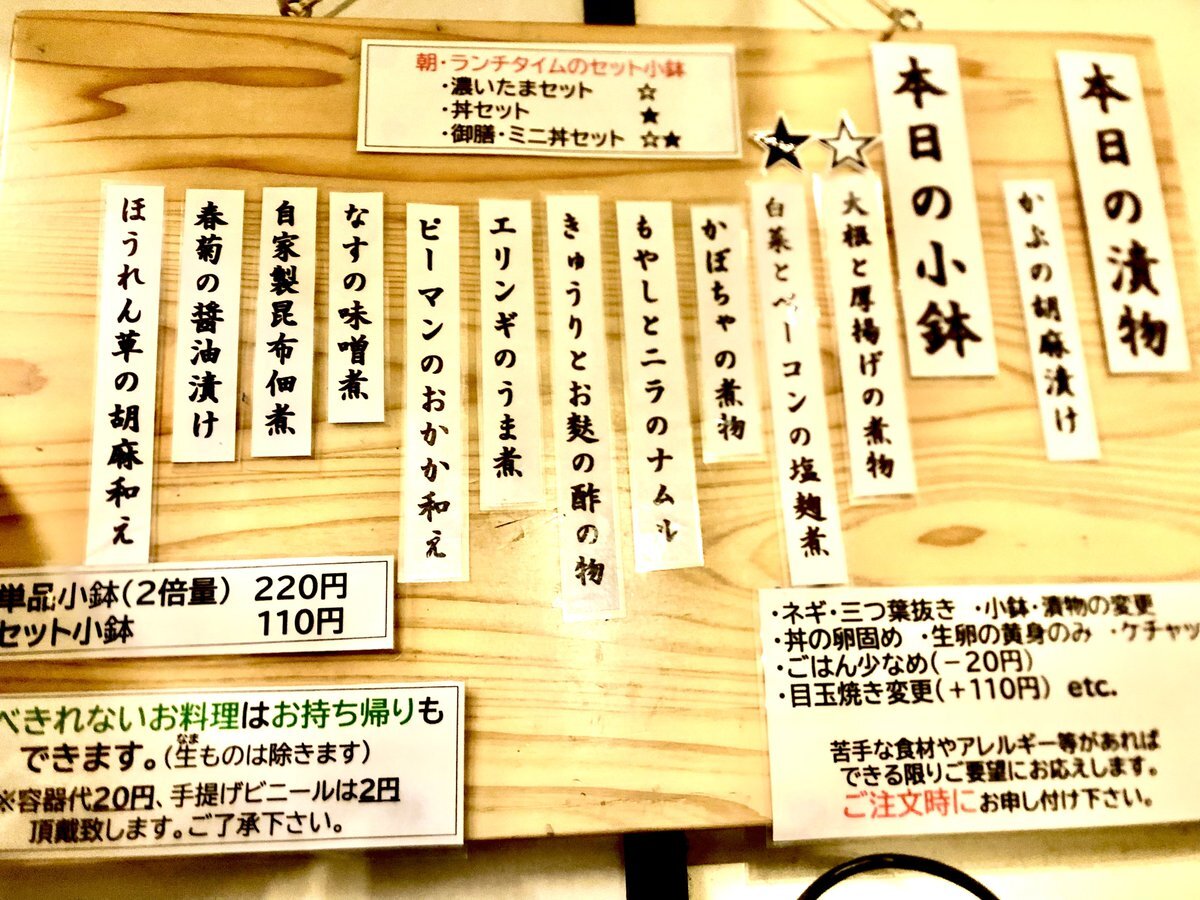 本日の漬物
かぶの胡麻漬け
本日の小鉢
☆
大根と厚揚げの煮物
★
白菜とベーコンの塩麹煮
かぼちゃの煮物
もやしとニラのナムル
きゅうりとお麩の酢の物
エリンギのうま煮
ピーマンのおかか和え
なすの味噌煮
自家製昆布佃煮
春菊の醤油漬け
ほうれん草の胡麻和え
朝・ランチタイムのセット小鉢
・濃いたまセット ☆
・丼セット ★
・御膳・ミニ丼セット ☆★
単品小鉢(2倍量) 220円
セット小鉢 110円
べきれないお料理はお持ち帰りも
できます。(生ものは除きます)
なま
※容器代20円、手提げビニールは2円
頂戴致します。ご了承下さい。
・ネギ・三つ葉抜き ・小鉢・漬物の変更
・丼の卵固め ・生卵の黄身のみ ・ケチャッ
・ごはん少なめ(－20円)
・目玉焼き変更(＋110円) etc.
苦手な食材やアレルギー等があれば
できる限りご要望にお応えします。
ご注文時にお申し付け下さい。